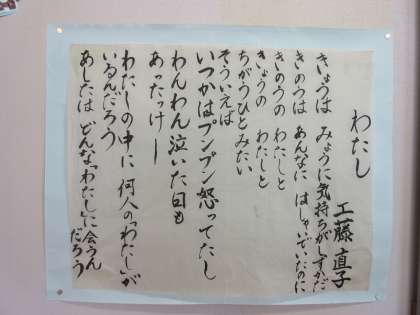 わたし
工藤直子
きょうは みょうに気持ちがしずかだ
きのうは あんなに はしゃいでいたのに
きのうの わたしと
きょうの わたしと
ちがうひとみたい
そういえば
いつかはプンプン怒ってたし
わんわん泣いた日も
あったっけー
わたしの中に 何人の「わたし」が
いるんだろう
あしたは どんな「わたし」に会うん
だろう